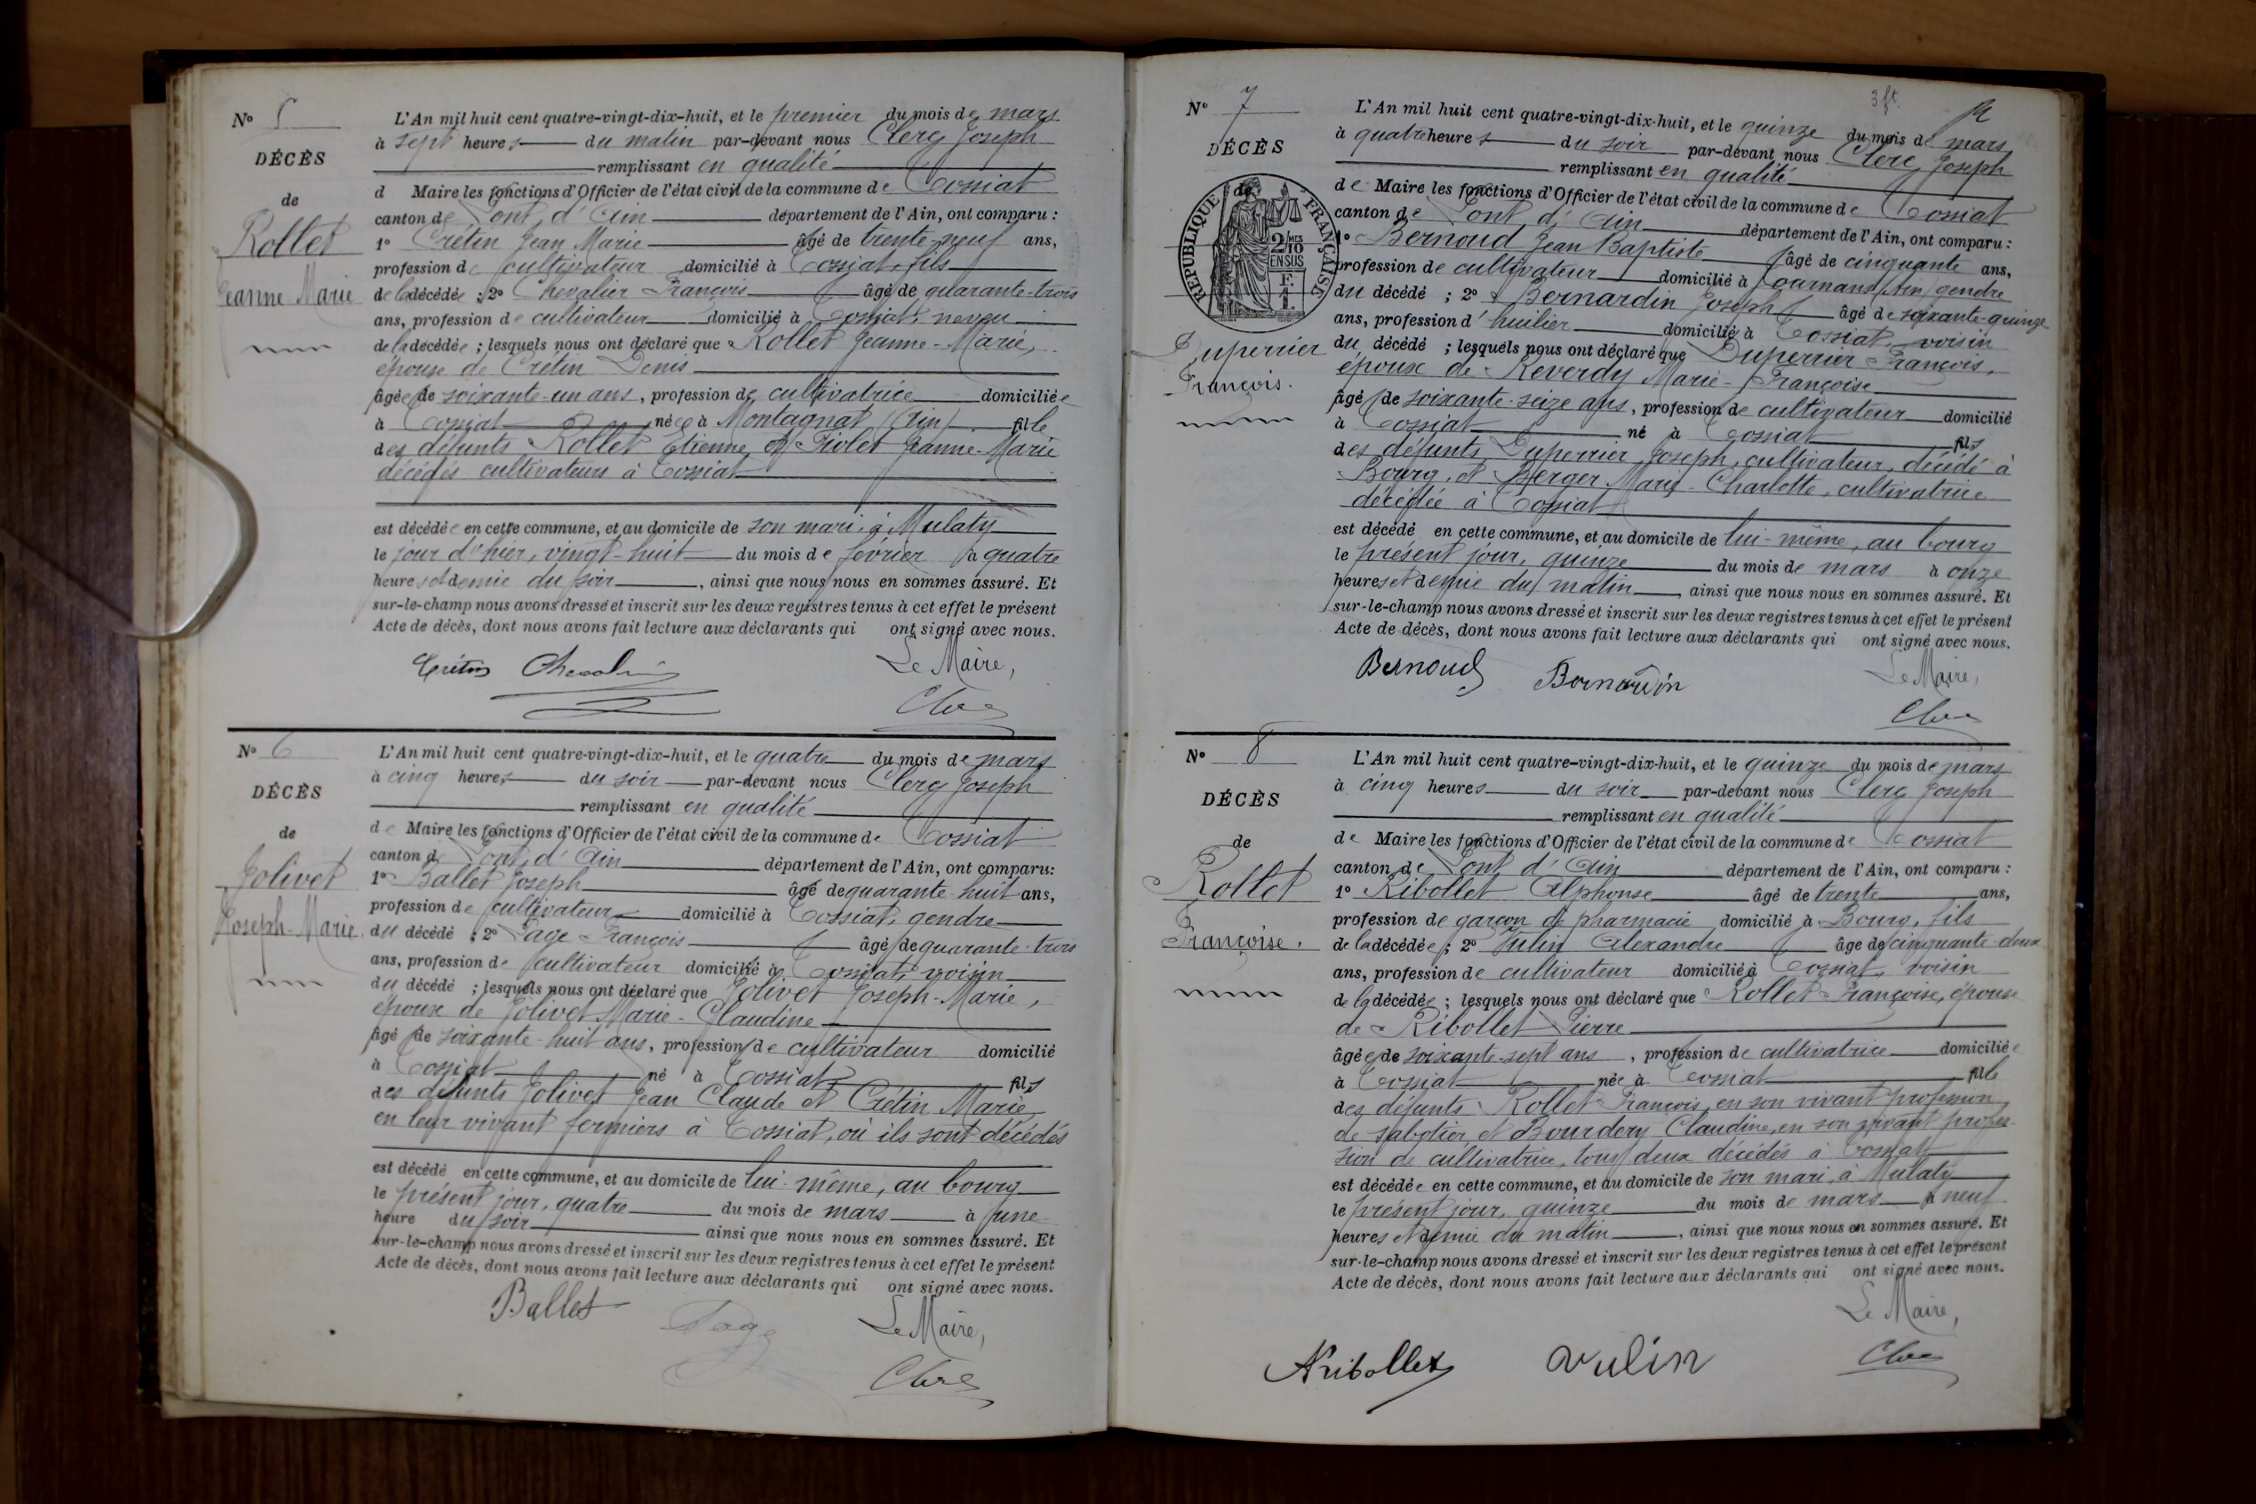 N° 5
DÉCÈS
de
Rollet
Jeanne Marie
L'An mil huit cent quatre-vingt-dix-huit, et le premier du mois de mars
à sept heures du matin par-devant nous Clerc Joseph
remplissant en qualité
d Maire les fonctions d'Officier de l'état civil de la commune de Tossiat
canton de Pont d'Ain département de l'Ain, ont comparu :
1° Crétin Jean Marie âgé de trente-neuf ans,
profession de cultivateur domicilié à Tossiat, fils
de la décédée ; 2° Chevalier François âgé de quarante-trois
ans, profession de cultivateur domicilié à Tossiat, neveu
de la décédée ; lesquels nous ont déclaré que Rollet Jeanne-Marie,
épouse de Crétin Denis
âgée de soixante-un ans, profession de cultivatrice domiciliée
à Tossiat née à Montagnat (Ain) fille
des défunts Rollet Etienne et Jeanne-Marie
décédés cultivateurs à Tossiat
est décédée en cette commune, et au domicile de son mari, à Mulaty
le jour d'hier, vingt-huit du mois de février à quatre
heures et demie du soir, ainsi que nous nous en sommes assuré. Et
sur-le-champ nous avons dressé et inscrit sur les deux registres tenus à cet effet le présent
Acte de décès, dont nous avons fait lecture aux déclarants qui ont signé avec nous.
Crétin Chevalier Le Maire,
Clerc
N° 6
DÉCÈS
de
Jolivet
Joseph-Marie
L'An mil huit cent quatre-vingt-dix-huit, et le quatre du mois de mars
à cinq heures du soir par-devant nous Clerc Joseph
remplissant en qualité
de Maire les fonctions d'Officier de l'état civil de la commune de Tossiat
canton de Pont d'Ain département de l'Ain, ont comparu:
1° Ballet Joseph âgé de quarante-huit ans,
profession de cultivateur domicilié à Tossiat, gendre
du décédé ; 2° Page François âgé de quarante-trois
ans, profession de cultivateur domicilié à Tossiat, voisin
du décédé ; lesquels nous ont déclaré que Jolivet Joseph-Marie,
époux de Jolivet Marie-Claudine
âgé de soixante-huit ans, profession de cultivateur domicilié
à Tossiat né à Tossiat fils
des défunts Jolivet Jean Claude et Crétin Marie,
en leur vivant fermiers à Tossiat, où ils sont décédés
est décédé en cette commune, et au domicile de lui-même, au bourg
le présent jour, quatre du mois de mars à une
heure du soir ainsi que nous nous en sommes assuré. Et
sur-le-champ nous avons dressé et inscrit sur les deux registres tenus à cet effet le présent
Acte de décès, dont nous avons fait lecture aux déclarants qui ont signé avec nous.
Ballet Page Le Maire,
Clerc
3 ft.
N° 7
DÉCÈS
de
RÉPUBLIQUE FRANÇAISE
2/10
EN SUS
Duperrier
François.
L'An mil huit cent quatre-vingt-dix-huit, et le quinze du mois de mars
à quatre heures du soir par-devant nous Clerc Joseph
remplissant en qualité
de Maire les fonctions d'Officier de l'état civil de la commune de Tossiat
canton de Pont d'Ain département de l'Ain, ont comparu :
1° Bernoud Jean Baptiste âgé de cinquante ans,
profession de cultivateur domicilié à Journans (Ain) gendre
du décédé ; 2° Bernardin Joseph âgé de soixante-quinze
ans, profession d'huilier domicilié à Tossiat, voisin
du décédé ; lesquels nous ont déclaré que Duperrier François,
époux de Reverdy Marie-Françoise
âgé de soixante-seize ans, profession de cultivateur domicilié
à Tossiat né à Tossiat fils
des défunts Duperrier Joseph, cultivateur, décédé à
Bourg, et Berger Marie-Charlotte, cultivatrice
décédée à Tossiat
est décédé en cette commune, et au domicile de lui-même, au bourg
le présent jour, quinze du mois de mars à onze
heures et demie du matin, ainsi que nous nous en sommes assuré. Et
sur-le-champ nous avons dressé et inscrit sur les deux registres tenus à cet effet le présent
Acte de décès, dont nous avons fait lecture aux déclarants qui ont signé avec nous.
Bernoud Bernardin Le Maire,
Clerc
N° 8
DÉCÈS
de
Rollet
Françoise.
L'An mil huit cent quatre-vingt-dix-huit, et le quinze du mois de mars
à cinq heures du soir par-devant nous Clerc Joseph
remplissant en qualité
de Maire les fonctions d'Officier de l'état civil de la commune de Tossiat
canton de Pont d'Ain département de l'Ain, ont comparu :
1° Ribollet Alphonse âgé de trente ans,
profession de garçon de pharmacie domicilié à Bourg, fils
de la décédée ; 2° Vulin Alexandre âgé de cinquante-deux
ans, profession de cultivateur domicilié à Tossiat, voisin
de la décédée ; lesquels nous ont déclaré que Rollet Françoise, épouse
de Ribollet Pierre
âgée de soixante-sept ans, profession de cultivatrice domiciliée
à Tossiat née à Tossiat fille
des défunts Rollet François, en son vivant profession
de sabotier, et Bourdery Claudine, en son vivant profes-
sion de cultivatrice, tous deux décédés à Tossiat
est décédée en cette commune, et au domicile de son mari, à Mulaty
le présent jour, quinze du mois de mars à neuf
heures et demie du matin, ainsi que nous nous en sommes assuré. Et
sur-le-champ nous avons dressé et inscrit sur les deux registres tenus à cet effet le présent
Acte de décès, dont nous avons fait lecture aux déclarants qui ont signé avec nous.
Le Maire,
Aribollet Vulin Clerc